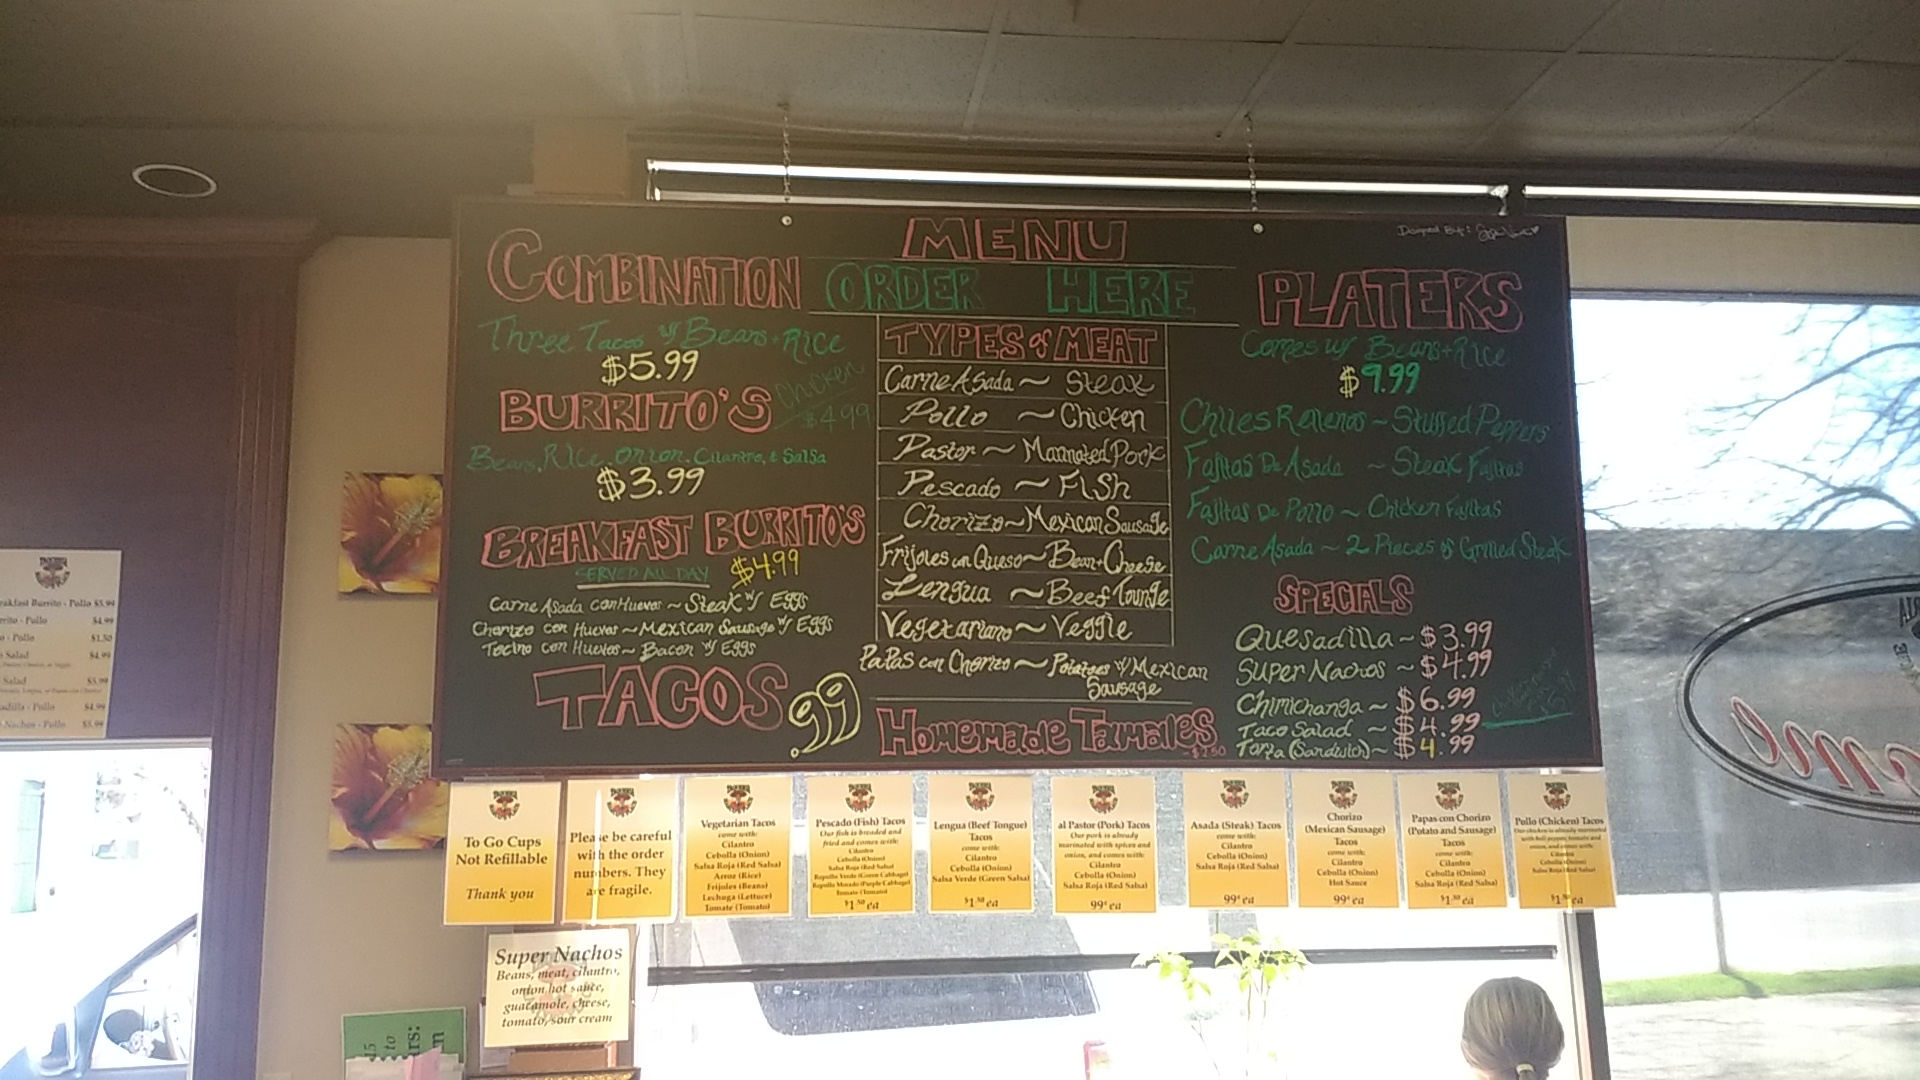 MENU
ORDER HERE
COMBINATION
Three Tacos w/ Beans + Rice
$5.99
BURRITO'S
Chicken
$4.99
Beans, Rice, Onion, Cilantro, & Salsa
$3.99
BREAKFAST BURRITO'S
SERVED ALL DAY
$4.99
Carne Asada con Huevos ~ Steak w/ Eggs
Chorizo con Huevos ~ Mexican Sausage w/ Eggs
Tocino con Huevos ~ Bacon w/ Eggs
TACOS .99
TYPES of MEAT
Carne Asada ~ Steak
Pollo ~ Chicken
Pastor ~ Marinated Pork
Pescado ~ Fish
Chorizo ~ Mexican Sausage
Frijoles con Queso ~ Bean + Cheese
Lengua ~ Beef Tounge
Vegetariano ~ Veggie
Papas con Chorizo ~ Potatoes w/ Mexican
Sausage
Homemade Tamales
Designed By:
PLATERS
Comes w/ Beans + Rice
$9.99
Chiles Rellenos ~ Stuffed Peppers
Fajitas De Asada ~ Steak Fajitas
Fajitas De Pollo ~ Chicken Fajitas
Carne Asada ~ 2 Pieces of Grilled Steak
SPECIALS
Quesadilla ~ $3.99
Super Nachos ~ $4.99
Chimichanga ~ $6.99
Taco Salad ~ $4.99
Torta (Sandwich) ~ $4.99
To Go Cups
Not Refillable
Thank you
Please be careful
with the order
numbers. They
are fragile.
Vegetarian Tacos
come with:
Cilantro
Cebolla (Onion)
Salsa Roja (Red Salsa)
Arroz (Rice)
Frijoles (Beans)
Lechuga (Lettuce)
Tomate (Tomato)
Pescado (Fish) Tacos
Our fish is breaded and
fried and comes with:
Cilantro
Cebolla (Onion)
Salsa Roja (Red Salsa)
Repollo Verde (Green Cabbage)
Repollo Morado (Purple Cabbage)
Tomate (Tomato)
$1.50 ea
Lengua (Beef Tongue)
Tacos
come with:
Cilantro
Cebolla (Onion)
Salsa Verde (Green Salsa)
$1.50 ea
al Pastor (Pork) Tacos
Our pork is already
marinated with spices and
onion, and comes with:
Cilantro
Cebolla (Onion)
Salsa Roja (Red Salsa)
99¢ ea
Asada (Steak) Tacos
come with:
Cilantro
Cebolla (Onion)
Salsa Roja (Red Salsa)
99¢ ea
Chorizo
(Mexican Sausage)
Tacos
come with:
Cilantro
Cebolla (Onion)
Hot Sauce
99¢ ea
Papas con Chorizo
(Potato and Sausage)
Tacos
come with:
Cilantro
Cebolla (Onion)
Salsa Roja (Red Salsa)
$1.50 ea
Pollo (Chicken) Tacos
Our chicken is already marinated
with bell pepper, tomato and
onion, and comes with:
Cilantro
Cebolla (Onion)
Salsa Roja (Red Salsa)
Super Nachos
Beans, meat, cilantro,
onion hot sauce,
guacamole, cheese,
tomato, sour cream
Burrito - Pollo $5.99
- Pollo $4.99
- Pollo $1.50
Salad $4.99
Salad $5.99
- Pollo $4.99
Nachos - Pollo $5.99